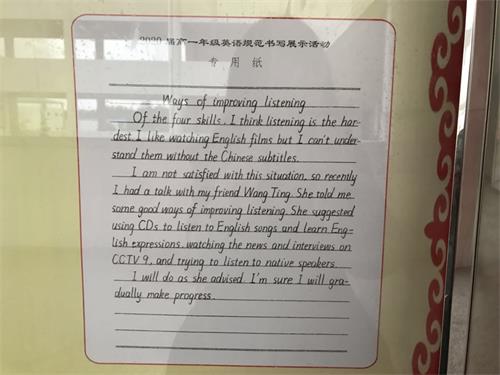 2020届高一年级英语规范书写展示活动
专用纸
Ways of improving listening
Of the four skills, I think listening is the har-
dest. I like watching English films but I can't under-
stand them without the Chinese subtitles.
I am not satisfied with this situation, so recently
I had a talk with my friend Wang Ting. She told me
some good ways of improving listening. She suggested
using CDs to listen to English songs and learn Eng-
lish expressions, watching the news and interviews on
CCTV 9, and trying to listen to native speakers.
I will do as she advised. I'm sure I will gra-
dually make progress.